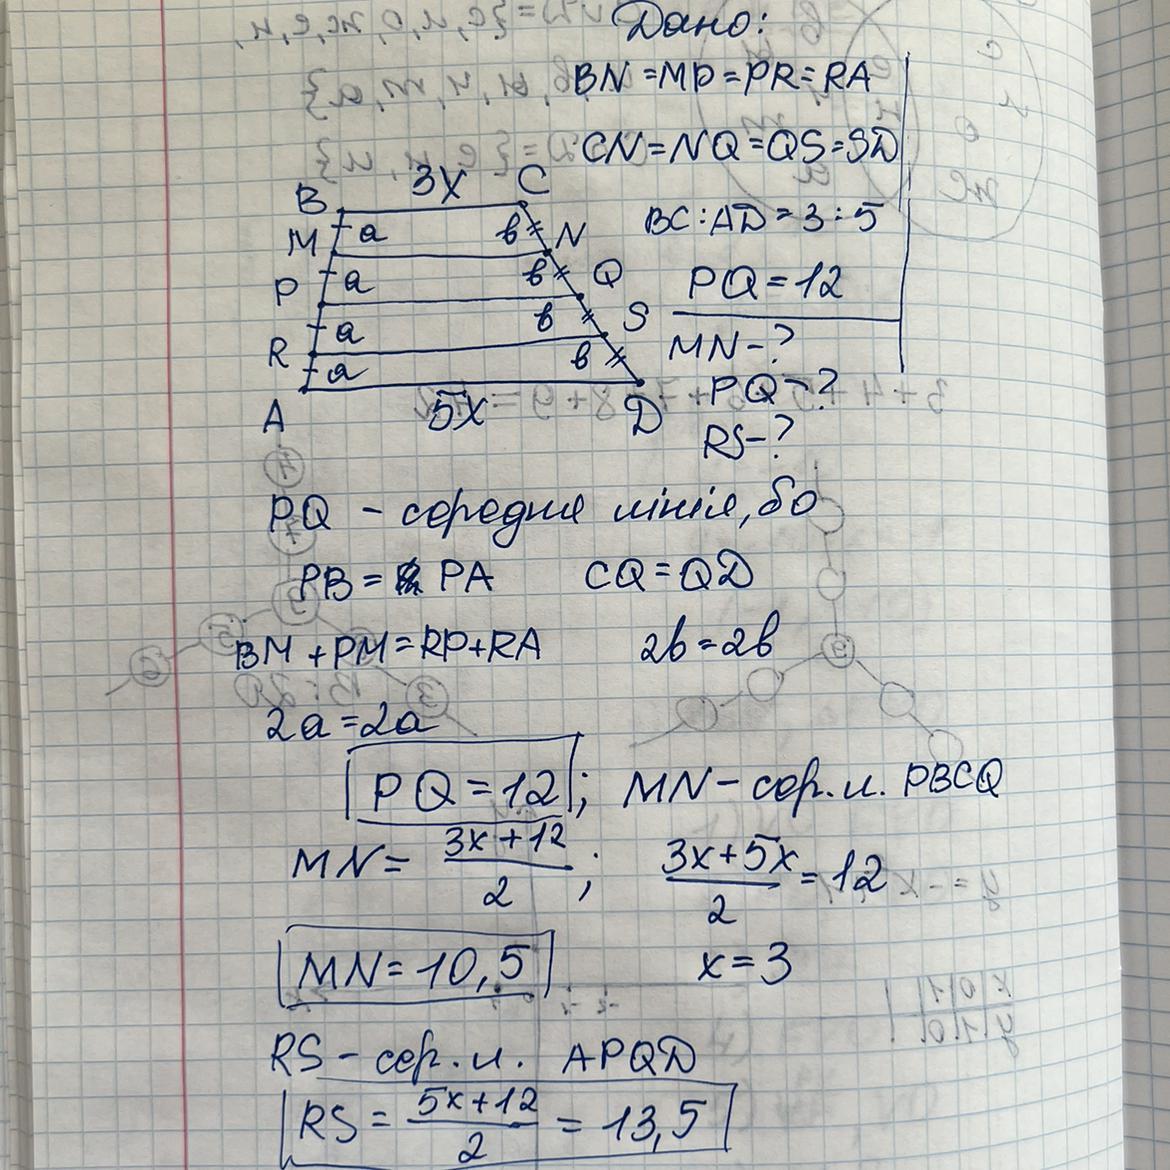 Дано:
BN = MP = PR = RA
CN = NQ = QS = SD
BC : AD = 3 : 5
PQ = 12
MN - ?
PQ - ?
RS - ?
B 3x C
M a в N
P a в Q
R a в S
a в
A 5x D
PQ - середня лінія, бо
PB = PA CQ = QD
BM + PM = RP + RA 2в = 2в
2a = 2a
PQ = 12 ; MN - сер. л. PBCQ
MN = (3x + 12)/2 ; (3x + 5x)/2 = 12
MN = 10,5 x = 3
RS - сер. л. APQD
RS = (5x + 12)/2 = 13,5